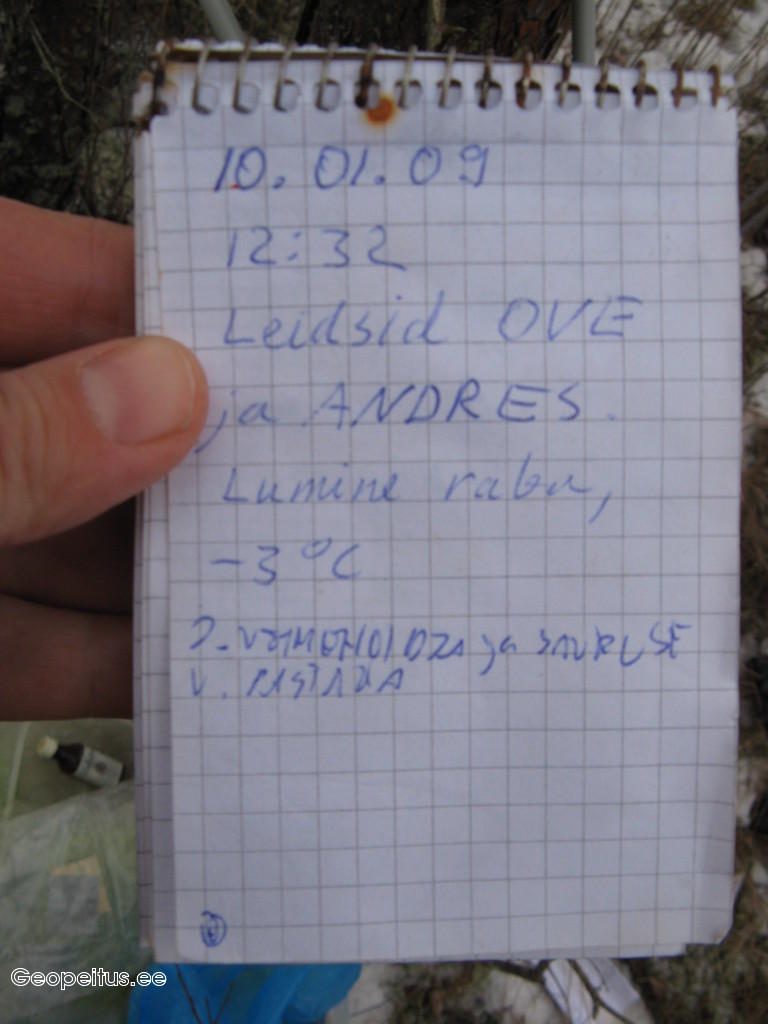 10.01.09
12:32
Leidsid OVE
ja ANDRES.
Lumine raba,
-3°C
ja
Geopeitus.ee